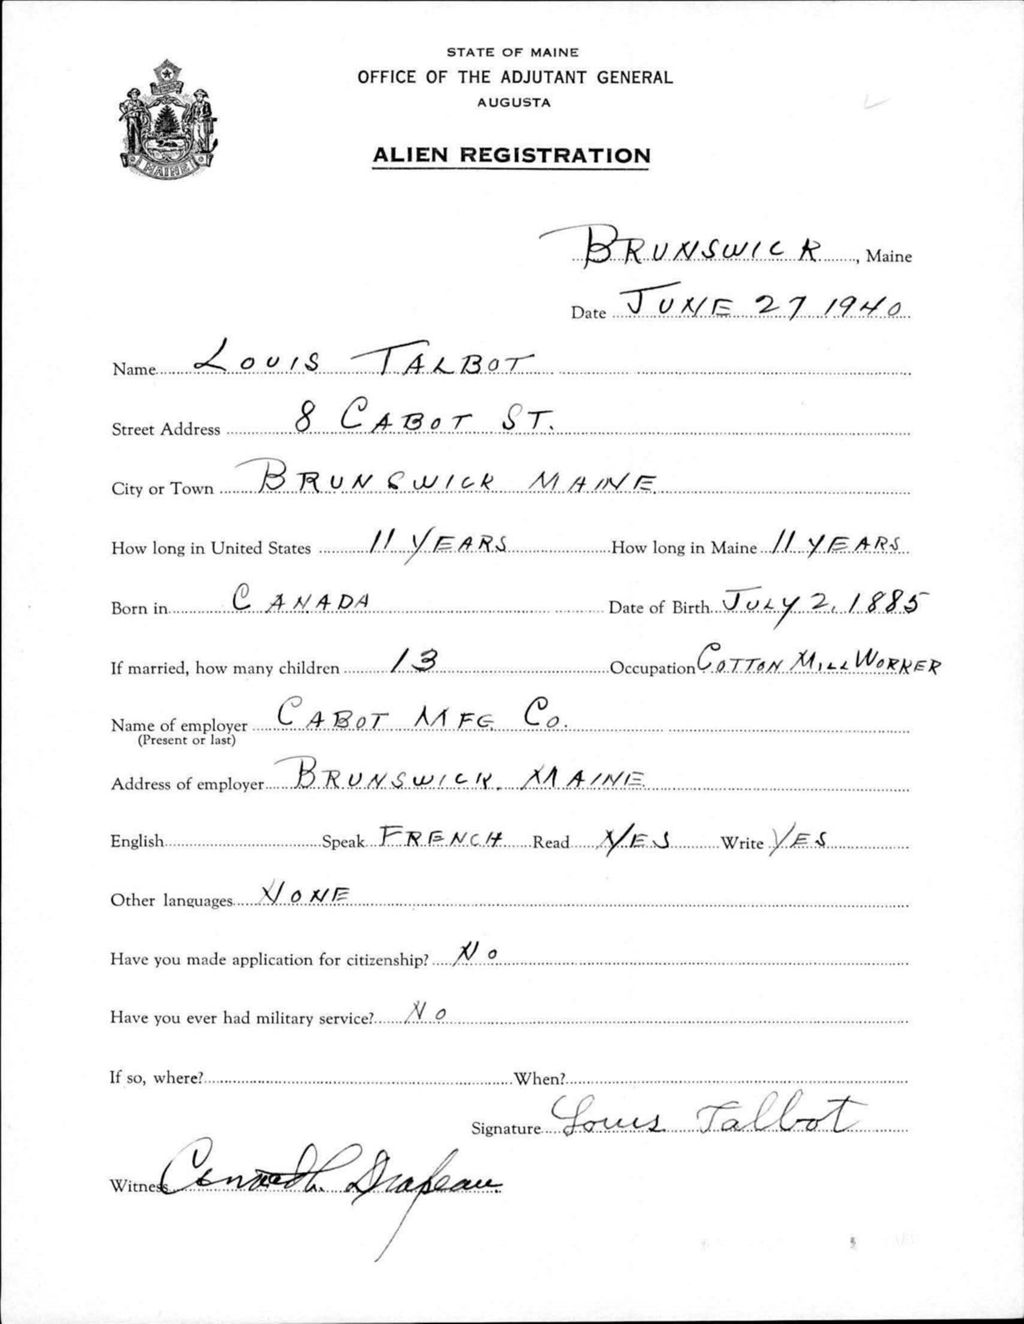 STATE OF MAINE
OFFICE OF THE ADJUTANT GENERAL
AUGUSTA
ALIEN REGISTRATION
MAINE
BRUNSWICK, Maine
Date JUNE 27 1940
Name LOUIS TALBOT
Street Address 8 CABOT ST.
City or Town BRUNSWICK MAINE
How long in United States 11 YEARS How long in Maine 11 YEARS
Born in CANADA Date of Birth JULY 2, 1885
If married, how many children 13 Occupation COTTON MILL WORKER
Name of employer CABOT MFG. Co.
(Present or last)
Address of employer BRUNSWICK, MAINE
English Speak FRENCH Read YES Write YES
Other languages NONE
Have you made application for citizenship? No
Have you ever had military service? No
If so, where? When?
Signature Louis Talbot
Witness Drapeau